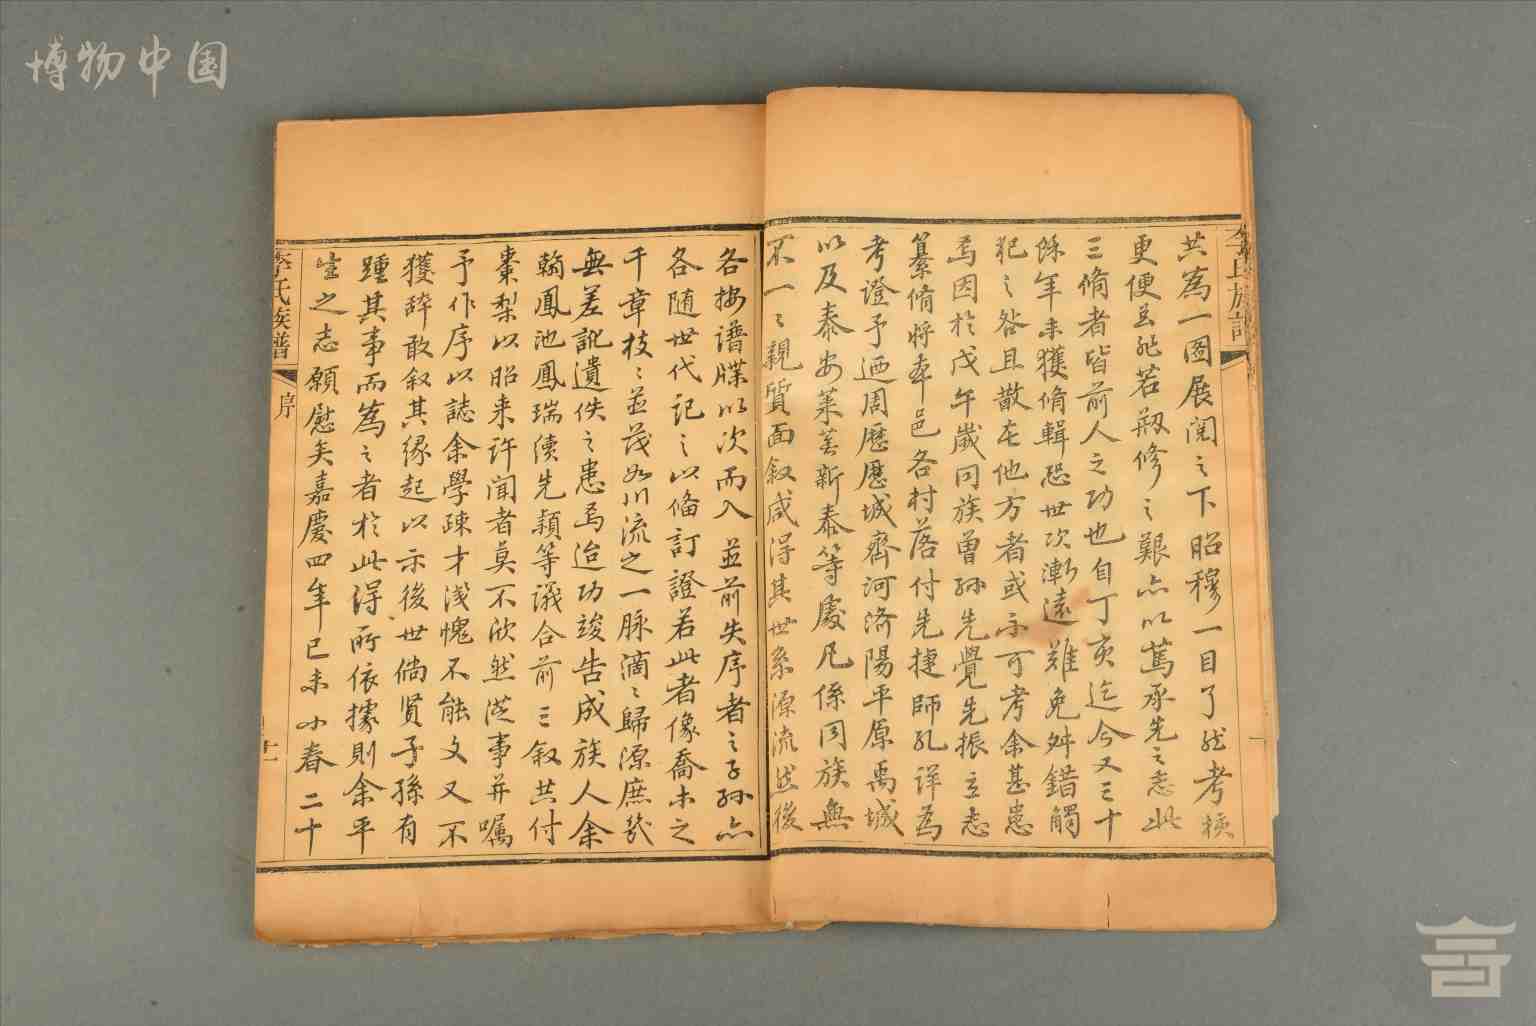 博物中国
李氏族譜
共為一图展阅之下昭穆一目了然考核
更便至於若剏修之艱亦以篤承先之志此
三脩者皆前人之功也自丁亥迄今又三十
餘年未獲脩輯恐世次漸遠難免舛錯觸
犯之咎且散在他方者或不可考余甚患
焉因於戊午歲同族曾孫先覺先振立志
纂脩将本邑各村落付先捷師孔详為
考證予廼周歷歷城齊河济陽平原禹城
以及泰安莱芜新泰等處凡係同族無
不一々親質面叙咸得其世系源流然後
各按譜牒以次而入並前失序者之子孙亦
各随世代記之以俻訂證若此者像喬木之
千章枝々並茂如川流之一脉滴々歸源庶幾
無差訛遺佚之患焉迨功竣告成族人余
翰鳳池鳳瑞續先頴等議合前三叙共付
棗梨以昭来许闻者莫不欣然從事并嘱
予作序以誌余學疎才浅愧不能文又不
獲辞敢叙其缘起以示後世倘贤子孫有
踵其事而為之者於此得所依據則余平
生之志願慰矣嘉慶四年已未小春二十
李氏族譜
序
十一